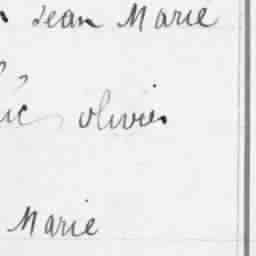 Jean Marie
olivier
Marie